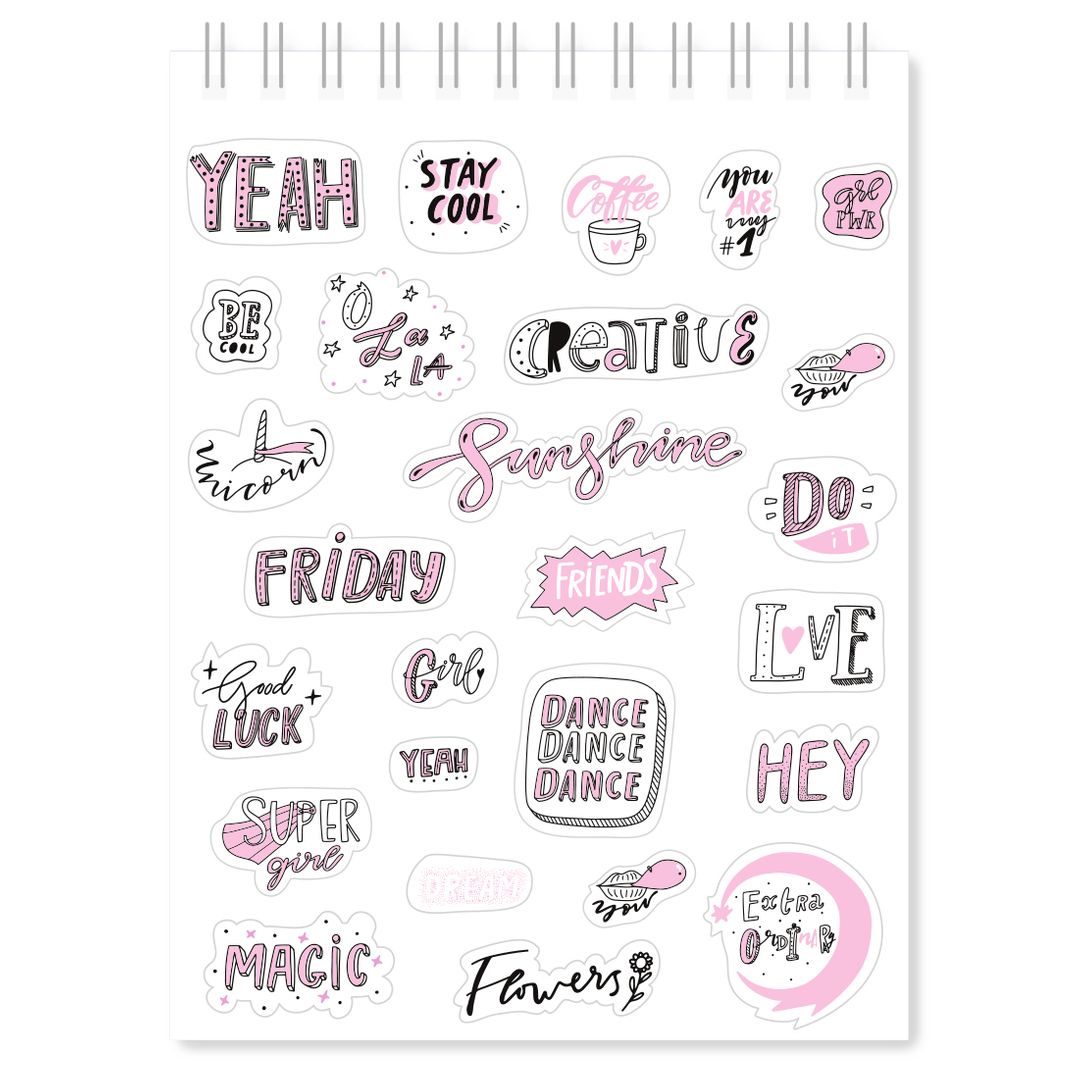 YEAH
STAY
COOL
Coffee
you
ARE
my
#1
grl
PWR
BE
COOL
O
La
LA
CREATIVE
your
unicorn
Sunshine
DO
iT
FRiDAY
FRiENDS
LOVE
Good
LUCK
Girl
DANCE
DANCE
DANCE
YEAH
HEY
SUPER
girl
DREAM
your
Extra
ORDINARy
MAGiC
Flowers